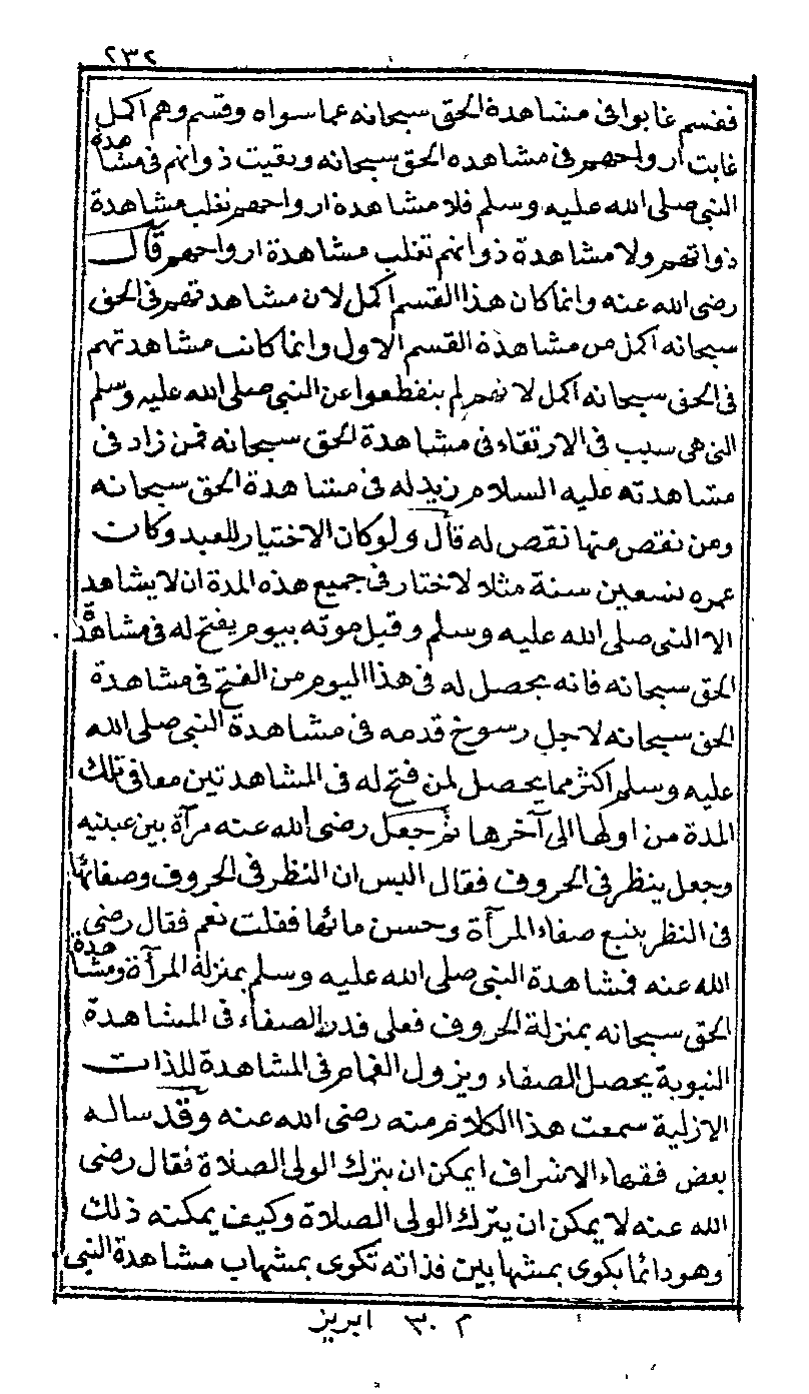 ٢٣٢
فقسم غابوا فى مشاهدة الحق سبحانه عما سواه وقسم وهم اكمل
غابت ارواحهم فى مشاهدة الحق سبحانه وبقيت ذواتهم فى مشاهدة
النبى صلى الله عليه وسلم فلا مشاهدة ارواحهم تغلب مشاهدة
ذواتهم ولا مشاهدة ذواتهم تغلب مشاهدة ارواحهم قال
رضى الله عنه وانما كان هذا القسم اكمل لان مشاهدتهم فى الحق
سبحانه اكمل من مشاهدة القسم الاول وانما كانت مشاهدتهم
فى الحق سبحانه اكمل لانهم لم ينقطعوا عن النبى صلى الله عليه وسلم
التى هى سبب فى الارتقاء فى مشاهدة الحق سبحانه فمن زاد فى
مشاهدته عليه السلام زيد له فى مشاهدة الحق سبحانه
ومن نقص منها نقص له قال ولو كان الاختيار للعبد وكان
عمره تسعين سنة مثلا لاختار فى جميع هذه المدة ان لا يشاهد
الا النبى صلى الله عليه وسلم وقبل موته بيوم يفتح له فى مشاهدة
الحق سبحانه فانه يحصل له فى هذا اليوم من الفتح فى مشاهدة
الحق سبحانه لاجل رسوخ قدمه فى مشاهدة النبى صلى الله
عليه وسلم اكثر مما يحصل لمن فتح له فى المشاهدتين معا فى تلك
المدة من اولها الى آخرها ثم جعل رضى الله عنه مرآة بين عينيه
وجعل ينظر فى الحروف فقال اليس ان النظر فى الحروف وصفائها
فى النظر يتبع صفاء المرآة وحسن مائها فقلت نعم فقال رضى
الله عنه فمشاهدة النبى صلى الله عليه وسلم بمنزلة المرآة ومشاهدة
الحق سبحانه بمنزلة الحروف فعلى قدر الصفاء فى المشاهدة
النبوية يحصل الصفاء ويزول الغمام فى المشاهدة للذات
الازلية سمعت هذا الكلام منه رضى الله عنه وقد ساله
بعض فقهاء الاشراف ايمكن ان يترك الولى الصلاة فقال رضى
الله عنه لا يمكن ان يترك الولى الصلاة وكيف يمكنه ذلك
وهو دائما يكوى بمشهابين فذاته تكوى بمشهاب مشاهدة النبى
م ٣٠ ابريز